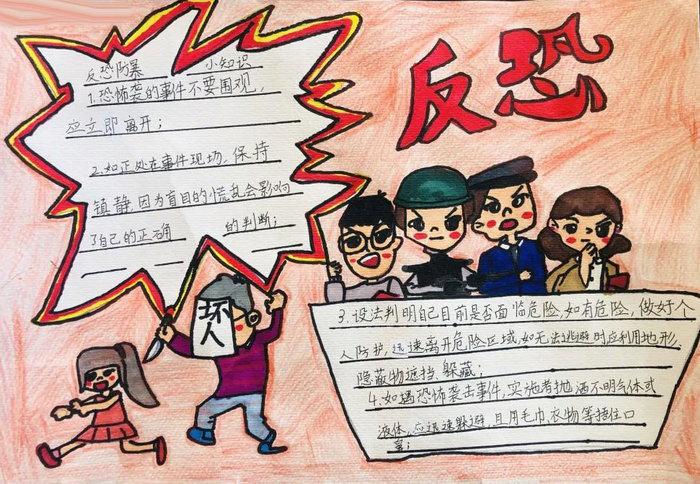 反恐
反恐防暴 小知识
1.恐怖袭的事件不要围观,
应立即离开;
2.如正处在事件现场,保持
镇静,因为盲目的慌乱会影响
了自己的正确 的判断;
坏人
3.设法判明自己目前是否面临危险,如有危险,做好个
人防护,迅速离开危险区域,如无法逃避时应利用地形,
隐蔽物遮挡、躲藏;
4.如遇恐怖袭击事件,实施者抛洒不明气体或
液体,应迅速躲避,且用毛巾、衣物等捂住口
鼻;